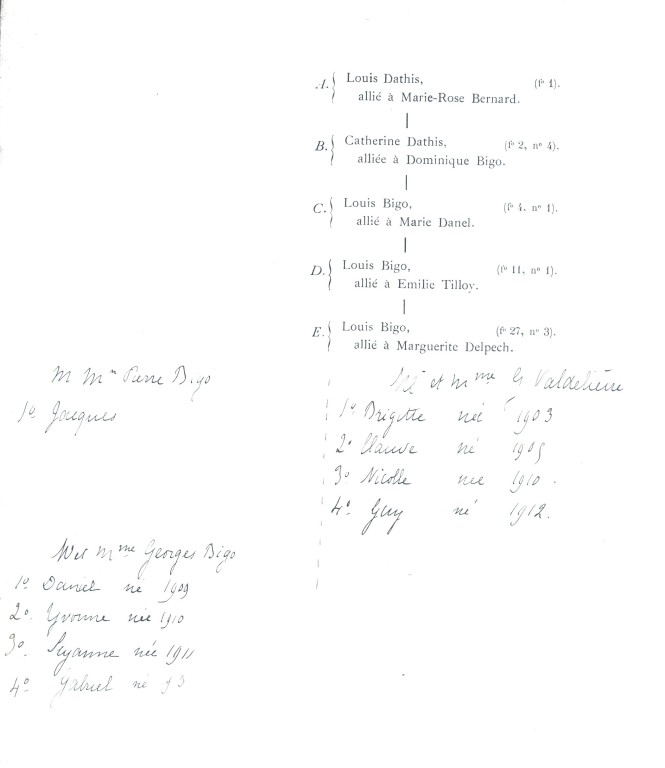 A. Louis Dathis, (fº 1).
allié à Marie-Rose Bernard.
B. Catherine Dathis, (fº 2, nº 4).
alliée à Dominique Bigo.
C. Louis Bigo, (fº 4. nº 1).
allié à Marie Danel.
D. Louis Bigo, (fº 11, nº 1).
allié à Emilie Tilloy.
E. Louis Bigo, (fº 27, nº 3).
allié à Marguerite Delpech.
M Mme Pierre Bigo
1º Jacques
et Mme G Valdelièvre
1º Brigitte née 1903
2º Claude né 1905
3º Nicolle née 1910
4º Guy né 1912.
M et Mme Georges Bigo
1º Daniel né 1909
2º. Yvonne née 1910
3º. Suzanne née 1911
4º Gabriel né 13